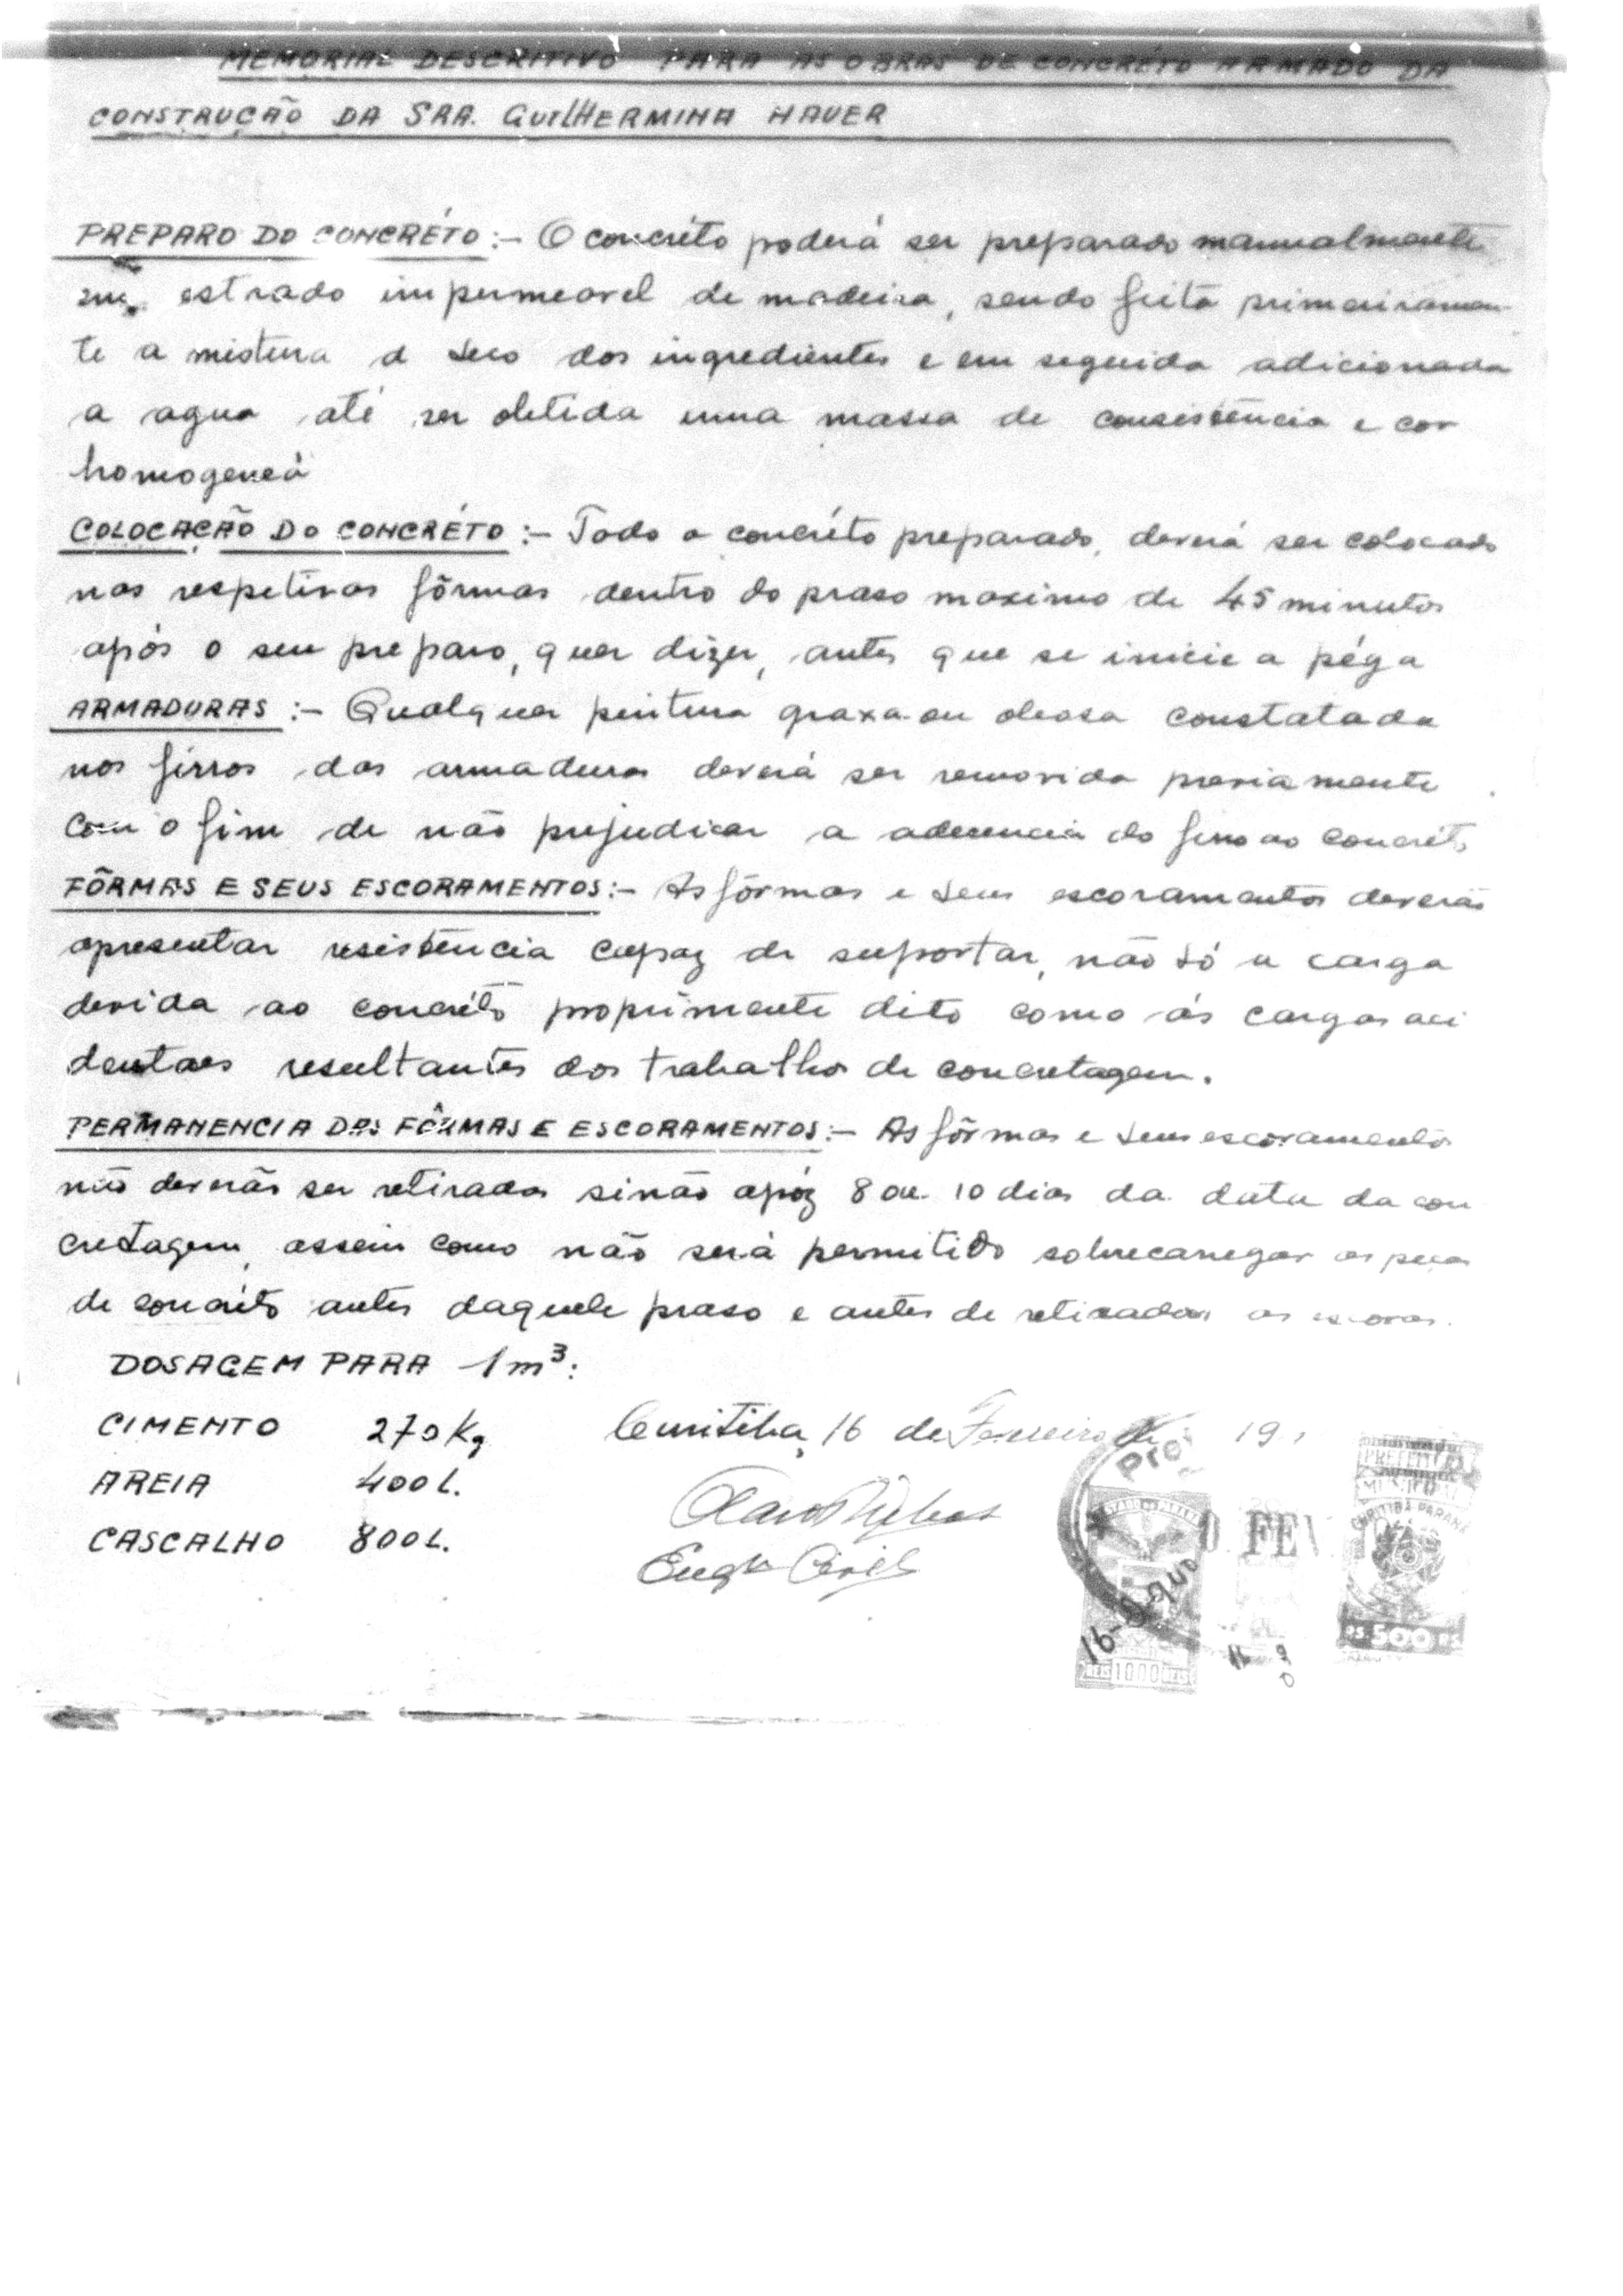 MEMORIAL DESCRITIVO PARA AS OBRAS DE CONCRÉTO ARMADO DA
CONSTRUÇÃO DA SRA. GUILHERMINA HAUER
PREPARO DO CONCRÉTO:- O concréto poderá ser preparado manualmente
em estrado impermeavel de madeira, sendo feita primeiramen-
te a mistura a seco dos ingredientes e em seguida adicionada
a agua até ser obtida uma massa de consistência e cor
homogeneá
COLOCAÇÃO DO CONCRÉTO:- Todo o concréto preparado, deverá ser colocado
nas respetivas fôrmas dentro do praso maximo de 45 minutos
após o seu preparo, quer dizer, antes que se inicie a péga
ARMADURAS:- Qualquer pintura graxa ou oleosa constatada
nos ferros das armaduras deverá ser removida previamente
com o fim de não prejudicar a aderencia do ferro ao concréto
FÔRMAS E SEUS ESCORAMENTOS:- As fôrmas e seus escoramentos deverão
apresentar resistência capaz de suportar, não só a carga
devida ao concréto proprimente dito como ás cargas aci
dentaes resultantes dos trabalhos de concretagem.
PERMANENCIA DAS FÔRMAS E ESCORAMENTOS:- As fôrmas e seus escoramentos
não deverão ser retirados sinão apóz 8 ou 10 dias da data da con
cretagem, assim como não será permitido sobrecarregar as peças
de concréto antes daquele praso e antes de retiradas as escoras.
DOSAGEM PARA 1m³:
CIMENTO 270 Kg
AREIA 400 L.
CASCALHO 800 L.
Curitiba, 16 de Fevereiro de 19
Engº Civil
PREFEITURA
MUNICIPAL
CURITIBA PARANÁ
FEV
16-2-940
REIS 1000 REIS
RS. 500 RS